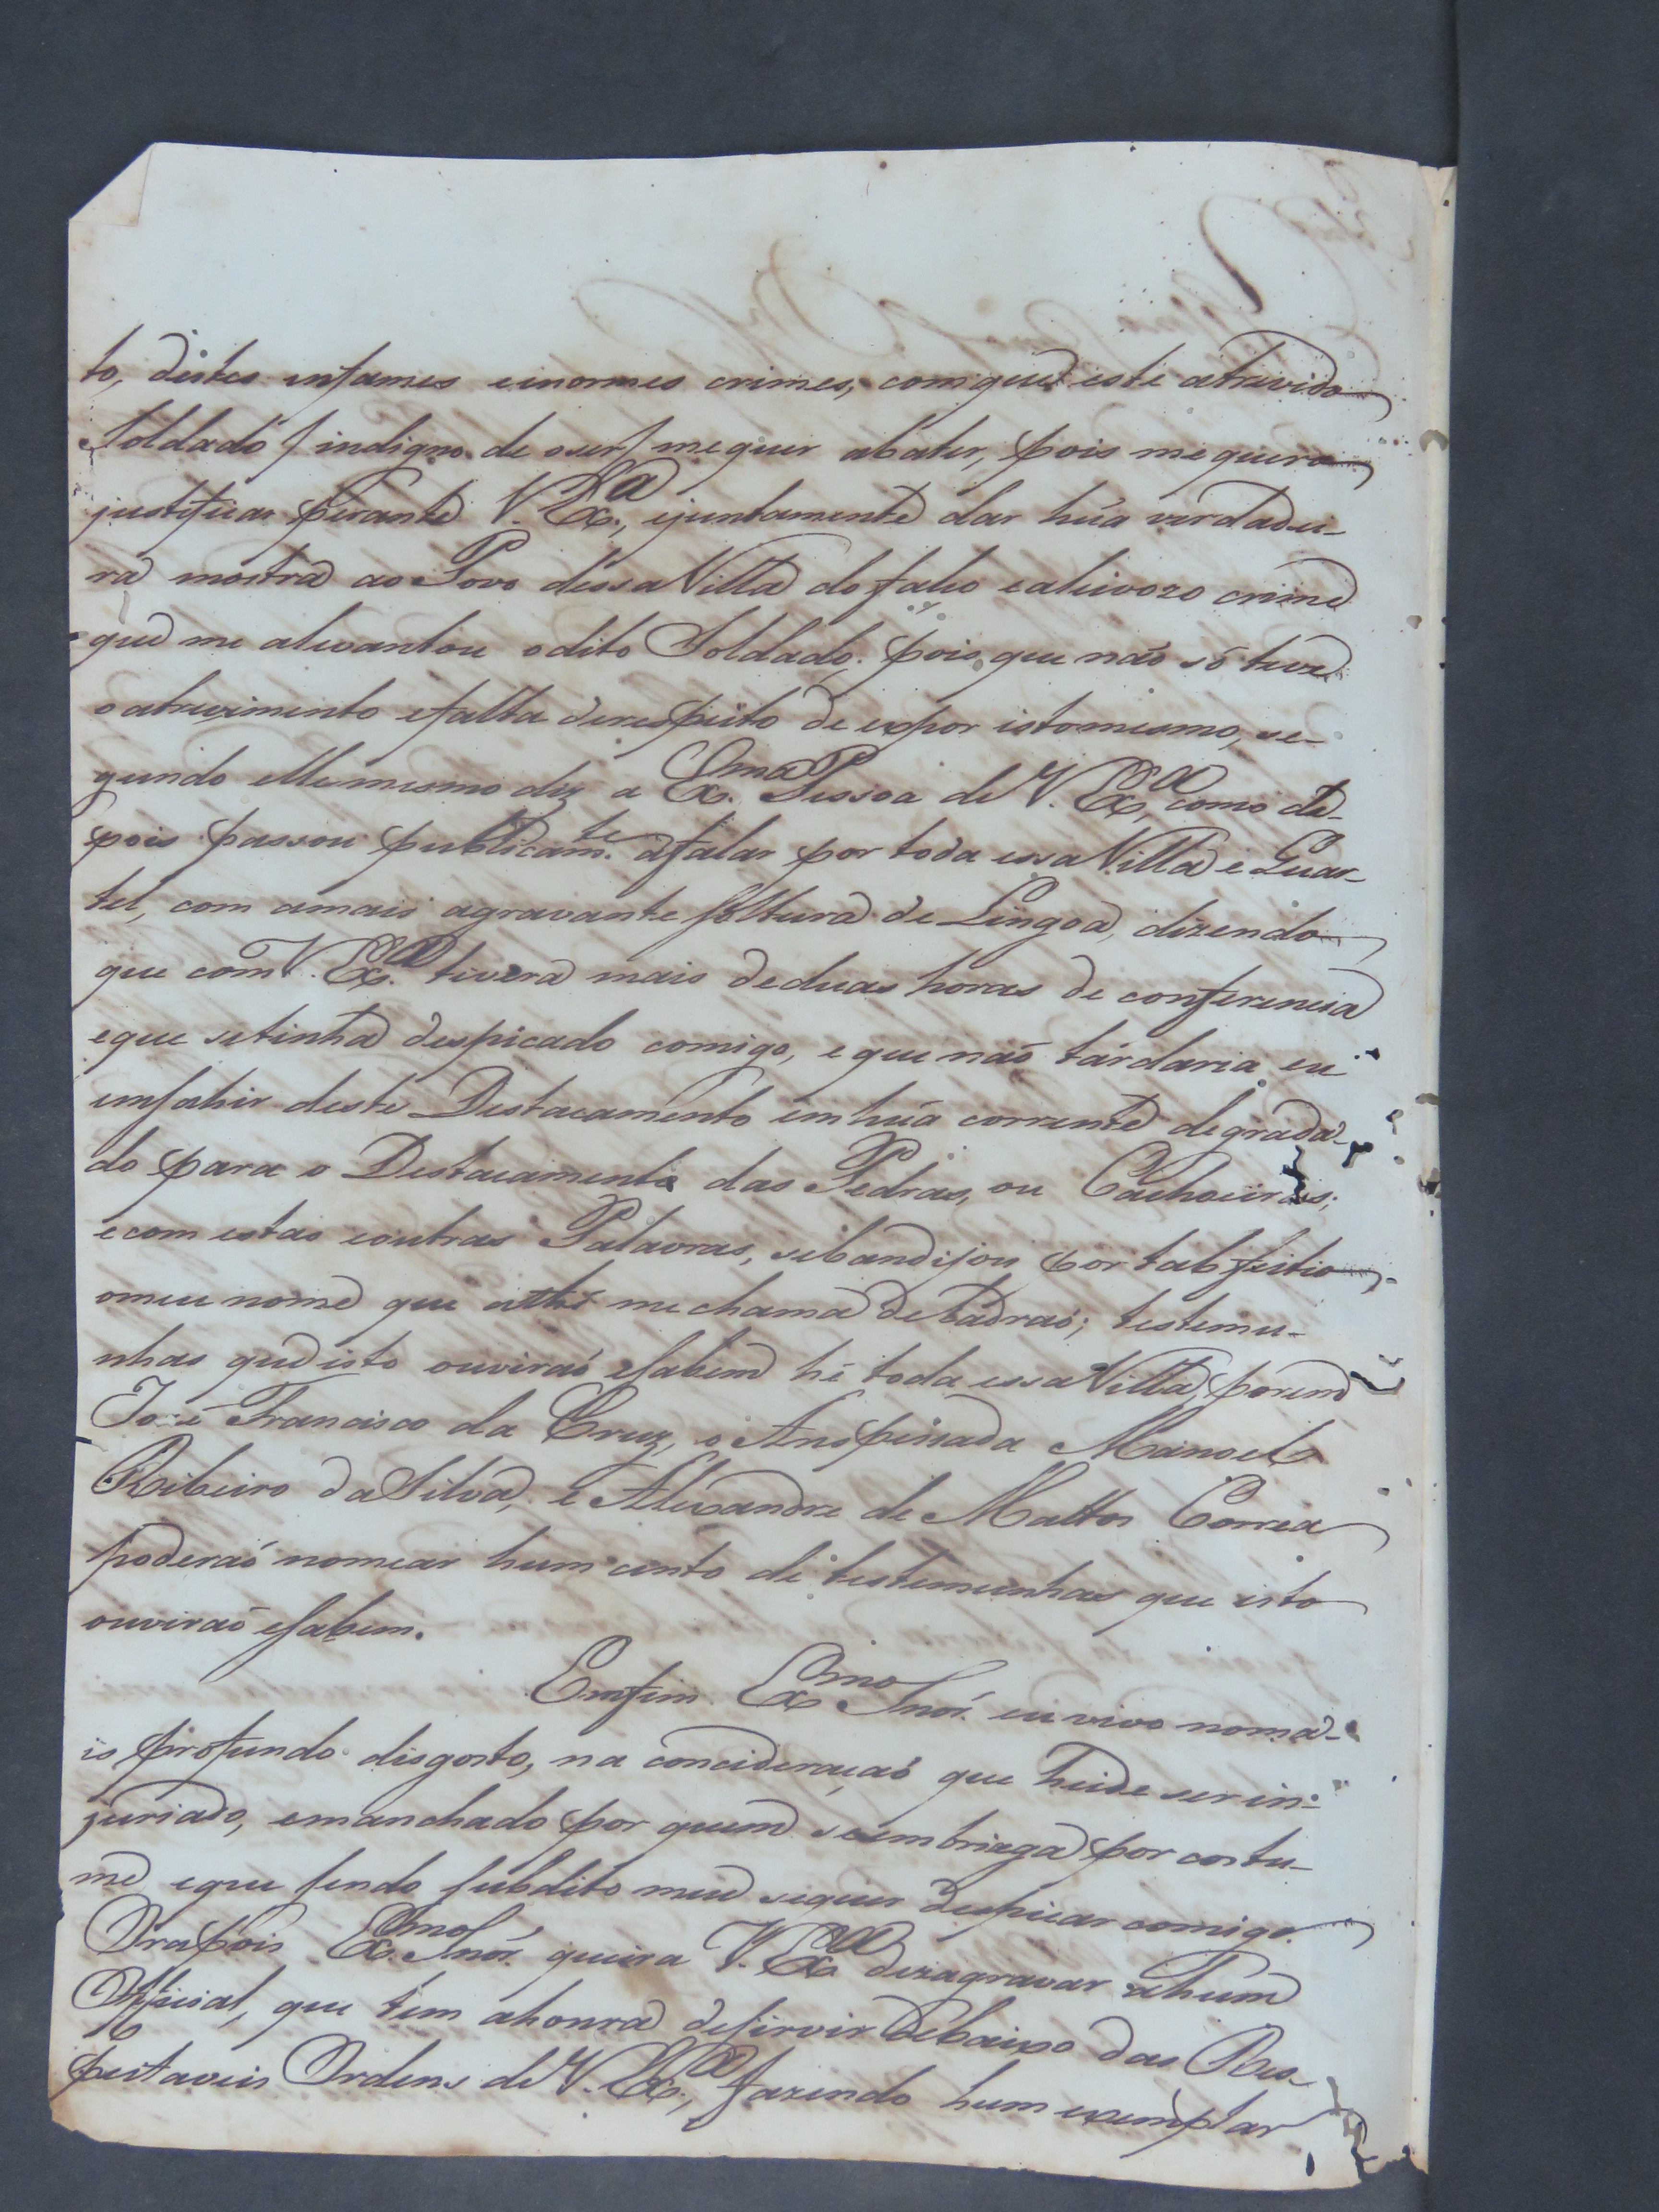 to, destes infames e inormes crimes, com que este atrevido
Soldado / indigno de o ser / me quer abater, pois me quero
justificar perante V. Exª, e juntamente dar hũa verdadei-
ra mostra ao Povo dessa Villa do falço e aleivozo crime
que me alevantou o dito Soldado; pois que não só teve
o atrevimento e falta de respeito de expor isto mesmo, se-
gundo elle mesmo diz a Exma Pessoa de V. Exª, como de-
pois passou publicamte a falar por toda essa Villa e Quar-
tel, com a mais agravante soltura de Lingoa, dizendo
que com V. Exª tivera mais de duas horas de conferencia
e que se tinha despicado comigo, e que não tardaria eu
em sahir deste Destacamento em hũa corrente degrada-
do para o Destacamento das Pedras, ou Cachoeiras;
e com estas e outras Palavras, sibandijou por tal feitio
o meu nome que athé me chama de Ladraõ; testemu-
nhas que isto ouviraõ e sabem hé toda essa Villa, porem
José Francisco da Cruz, o Anspeçada Manoel
Ribeiro da Silva, e Alexandre de Mattos Correa
poderaõ nomear hum cento de testemunhas que isto
ouviraõ e sabem.
Emfim Exmo Snõr. eu vivo no ma-
is profundo disgosto, na concideraçaõ que heide ser in-
juriado, e manchado por quem se embriaga por costu-
me e que sendo subdito meu se quer despicar comigo.
Ora pois Exmo Snõr. queira V. Exª dezagravar a hum
Official, que tem a honra de servir debaixo das Res-
peitaveis Ordens de V. Exª, fazendo hum exemplar